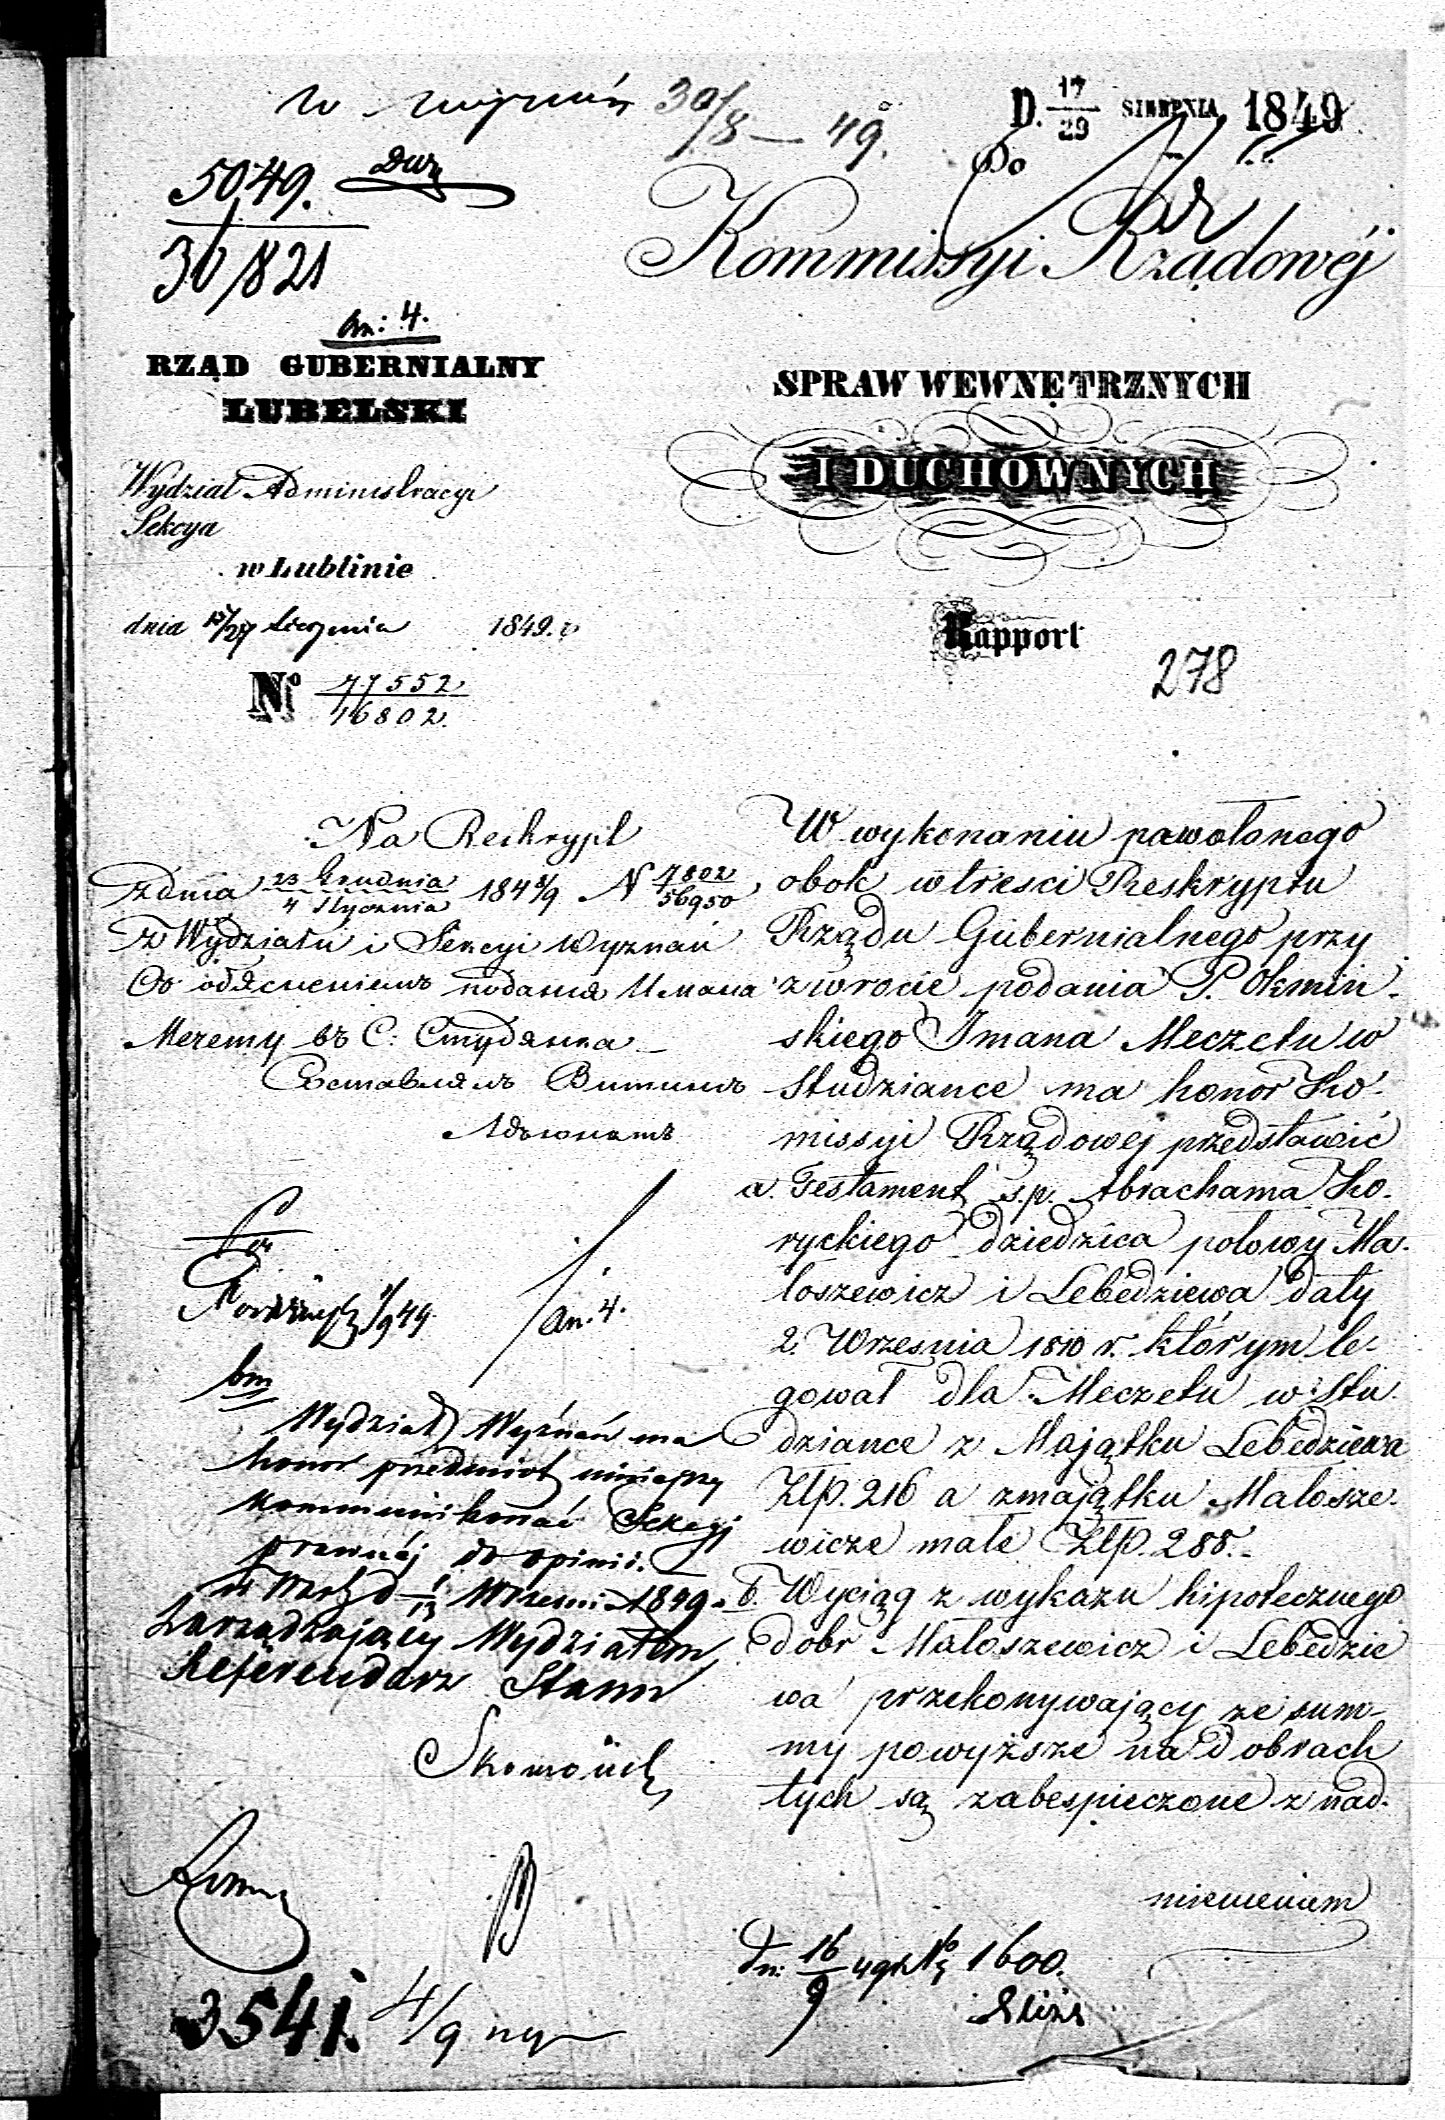 30/8 — 49.
D. 17/29 SIERPNIA 1849
5049.
36/821
Do
Kommissyi Rządowéj
an: 4.
RZĄD GUBERNIALNY
LUBELSKI
SPRAW WEWNĘTRZNYCH
I DUCHOWNYCH
Wydział Administracyi
Sekcya
w Lublinie
dnia 15/27 Sierpnia 1849. r.
Rapport
278
No 77552/16802.
Na Reskrypt
z dnia 23 Grudnia/4 Stycznia 1848/9 N 7802/56950,
z Wydziału i Sekcyi Wyznań
Съ объясненiемъ поданiя Имана
Мечети въ С: Студянка
Составилъ
Адъюнктъ
W wykonaniu powołanego
obok w treści Reskryptu
Rządu Gubernialnego przy
zwrocie podania P. Okmiń-
skiego Imana Meczetu w
Studziance ma honor Ko-
missyi Rządowej przedstawić
a. Testament ś.p. Abrachama Ko-
ryckiego dziedzica połowy Ma-
łoszewicz i Lebedziewa daty
2. Września 1810 r. którym le-
gował dla Meczetu w Stu
dziance z Majątku Lebedziewa
Złp. 216 a z majątku Małosze-
wicze małe Złp. 288.-
b. Wyciąg z wykazu hipotecznego
dobr Małoszewicz i Lebedzie
wa przekonywający że sum-
my powyższe na dobrach
tych są zabespieczone z nad-
mienieniem
an. 4.
bm
Wydział Wyznań ma
honor przedmiot niniejszy
kommunikować Sekcyi
prawnéj do opinii.
w Warsz d 1/13 Wrześni 1849.
Zarządzający Wydziałem
Referendarz Stanu
dn: 16/9 49 r. No 1600.
3541. 4/9